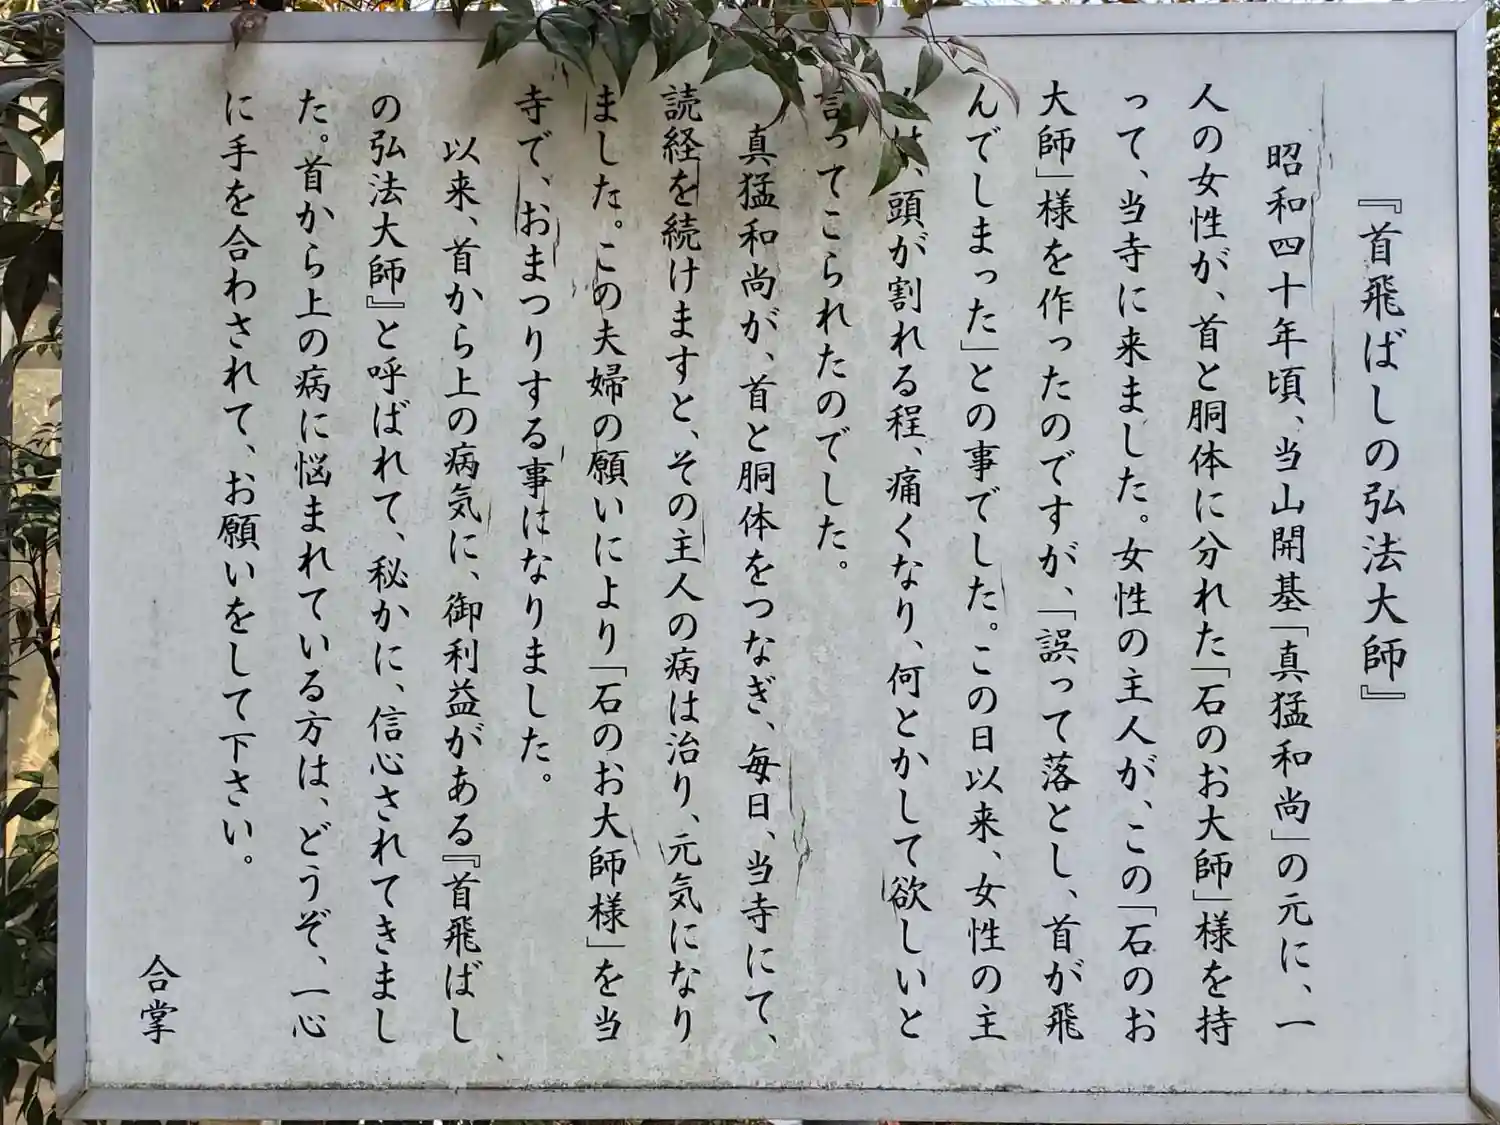 『首飛ばしの弘法大師』
昭和四十年頃、当山開基「真猛和尚」の元に、一
人の女性が、首と胴体に分れた「石のお大師」様を持
って、当寺に来ました。女性の主人が、この「石のお
大師」様を作ったのですが、「誤って落とし、首が飛
んでしまった」との事でした。この日以来、女性の主
は、頭が割れる程、痛くなり、何とかして欲しいと
言ってこられたのでした。
真猛和尚が、首と胴体をつなぎ、毎日、当寺にて、
読経を続けますと、その主人の病は治り、元気になり
ました。この夫婦の願いにより「石のお大師様」を当
寺で、おまつりする事になりました。
以来、首から上の病気に、御利益がある『首飛ばし
の弘法大師』と呼ばれて、秘かに、信心されてきまし
た。首から上の病に悩まれている方は、どうぞ、一心
に手を合わされて、お願いをして下さい。
合掌